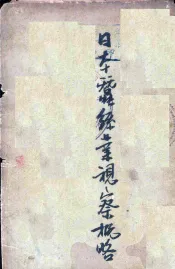 日本蚕絲業視察概略